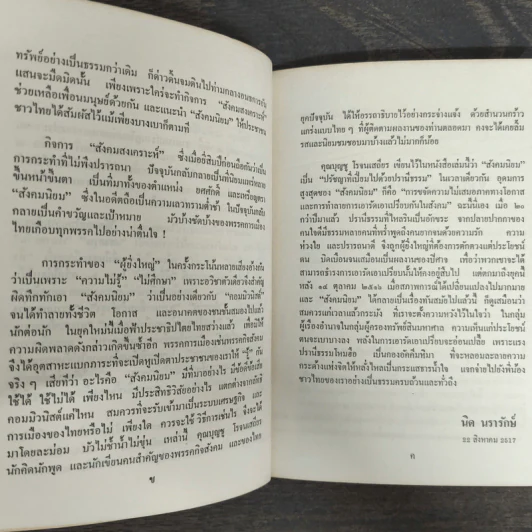 ทรัพย์อย่างเป็นธรรมกว่าเดิม ก็ด่าวดิ้นจมดินไปท่ามกลางคนตลอดกาลอัน
แสนจะมืดมิดนั้น เพียงเพราะใคร่จะทำกิจการ “สังคมสงเคราะห์”
ช่วยเหลือเพื่อนมนุษย์ด้วยกัน และแนะนำ “สังคมนิยม” ให้ประชาชน
ชาวไทยได้สัมผัสไว้แม้เพียงบางเบาก็ตามที
กิจการ “สังคมสงเคราะห์” ซึ่งเมื่อสิบปีก่อนถือกันว่าเป็น
การกระทำที่ไม่พึงปรารถนา ปัจจุบันกลับกลายเป็นที่นิยมแพร่หลาย
ขึ้นหน้าขึ้นตา เป็นที่มาทั้งของตำแหน่ง ยศศักดิ์ และเหรียญตรา
“สังคมนิยม” ซึ่งในอดีตถือเป็นความเลวทรามต่ำช้า ในปัจจุบันกลับ
กลายเป็นคำขวัญและเป้าหมาย มัวบ้างชัดบ้างของพรรคการเมือง
ไทยเกือบทุกพรรคไปอย่างน่าตื่นใจ !
การกระทำของ “ผู้ยิ่งใหญ่” ในครั้งกระโน้นหลายเสียงอ้างกัน
ว่าเป็นเพราะ “ความไม่รู้” “ไม่ศึกษา” เพราะอวิชชาตัวเดียวจึงสำคัญ
ผิดทึกทักเอา “สังคมนิยม” ว่าเป็นอย่างเดียวกับ “คอมมิวนิสต์”
จนได้ทำลายทั้งชีวิต โอกาส และอนาคตของชนทั้งสองไปแล้ว
นักต่อนัก ในยุคใหม่นี้เมื่อฟ้าประชาธิปไตยโหมสว่างแล้ว เพื่อมิให้
ความผิดพลาดดังกล่าวเกิดขึ้นซ้ำอีก พรรคการเมืองเช่นพรรคกิจสังคม
จึงได้อุตสาหะแบกภาระที่จะเปิดหูเปิดตาประชาชนของเราให้ “รู้” กัน
จริง ๆ เสียทีว่า อะไรคือ “สังคมนิยม” มีที่มาอย่างไร มีข้อดีข้อเสีย
ใช้ได้ ใช้ไม่ได้ เพียงไหน มีประสิทธิวิสัยอย่างไร แตกต่างจากลัทธิ
คอมมิวนิสต์แค่ไหน สมควรที่จะรับเข้ามาเป็นระบบเศรษฐกิจ และ
การเมืองของไทยหรือไม่ เพียงใด ควรจะใช้วิธีการเช่นไร จึงจะได้
มาโดยละม่อม บัวไม่ช้ำน้ำไม่ขุ่น เหล่านี้ คุณบุญชู โรจนเสถียร
นักคิดนักพูด และนักเขียนคนสำคัญของพรรคกิจสังคม และของไทย
ข
ยุคปัจจุบัน ได้ให้อรรถาธิบายไว้อย่างกระจ่างแจ้ง ด้วยสำนวนกร้าว
แกร่งแบบไทย ๆ ที่ผู้ติดตามผลงานของท่านตลอดมา คงจะได้เคยลิ้ม
รสและนิยมชมชอบมาบ้างแล้วไม่มากก็น้อย
คุณบุญชู โรจนเสถียร เขียนไว้ในหนังสือเล่มนี้ว่า “สังคมนิยม”
เป็น “ปรัชญาที่เปี่ยมไปด้วยปรานีธรรม” ในเวลาเดียวกัน อุดมการ
สูงสุดของ “สังคมนิยม” ก็คือ “การขจัดความไม่เสมอภาคทางโอกาส
และการทำลายการเอารัดเอาเปรียบกันในสังคม” ฉะนี้นี่เอง เมื่อ ๒๐
กว่าปีมาแล้ว ปรานีธรรมที่ไหลรินเป็นอักขระ จากปลายปากกาของ
คนใจดีมีธรรมหลายคนที่พร่ำพูดถึงคนยากจนด้วยความรัก ความ
ห่วงใย และปรารถนาดี จึงถูกผู้ยิ่งใหญ่ที่ต้องการตักตวงแต่ประโยชน์
ตน บิดเบือนจนเสมือนเป็นผลงานของปีศาจ เพื่อว่าพวกเขาจะได้
สามารถธำรงการเอารัดเอาเปรียบนั้นให้คงอยู่สืบไป แต่ตกมาถึงยุคหลัง
วัน ๑๔ ตุลาคม ๒๕๑๖ เมื่อสภาพการณ์ได้เปลี่ยนแปลงไปมากมาย
และ “สังคมนิยม” ได้กลายเป็นเรื่องทันสมัยไปแล้วนี้ ก็ดูเสมือนว่า
สมควรแก่เวลาแล้วกระมัง ที่เราจะตั้งความหวังไว้ในใจว่า ในกลุ่ม
ผู้เรืองอำนาจในกลุ่มผู้ครองทรัพย์สินมหาศาล ความเห็นแก่ประโยชน์
ตนจะเบาบางลง พลังในการเอารัดเอาเปรียบจะอ่อนเปลี้ย เพราะแรง
ปรานีธรรมโหมฮือ เป็นกองอัคคีมหิมา ที่จะหลอมละลายความ
กระด้างแห่งจิตให้หลั่งไหลเป็นกระแสธารน้ำใจ แจกจ่ายไปยังพี่น้อง
ชาวไทยของเราอย่างเป็นธรรมครบถ้วนและทั่วถึง
นิด นรารักษ์
22 สิงหาคม 2517
ค